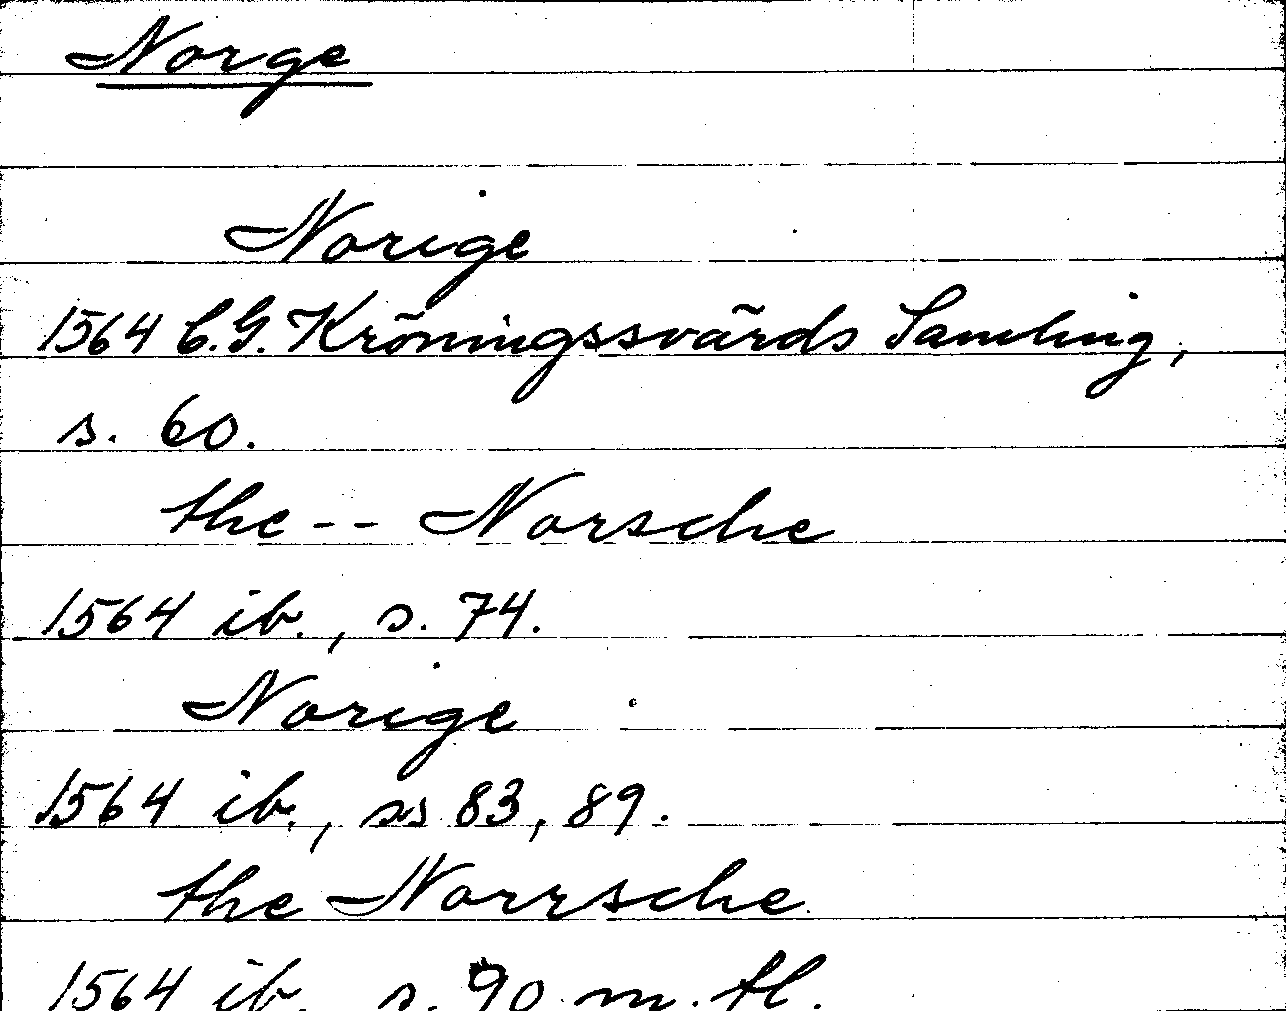 Norge
Norige
1564 C.G. Kröningssvärds Samling,
s. 60.
the -- Norsche
1564 ib., s. 74.
Norige
1564 ib., ss 83, 89.
the Norrsche
1564 ib. s. 90 m. fl.